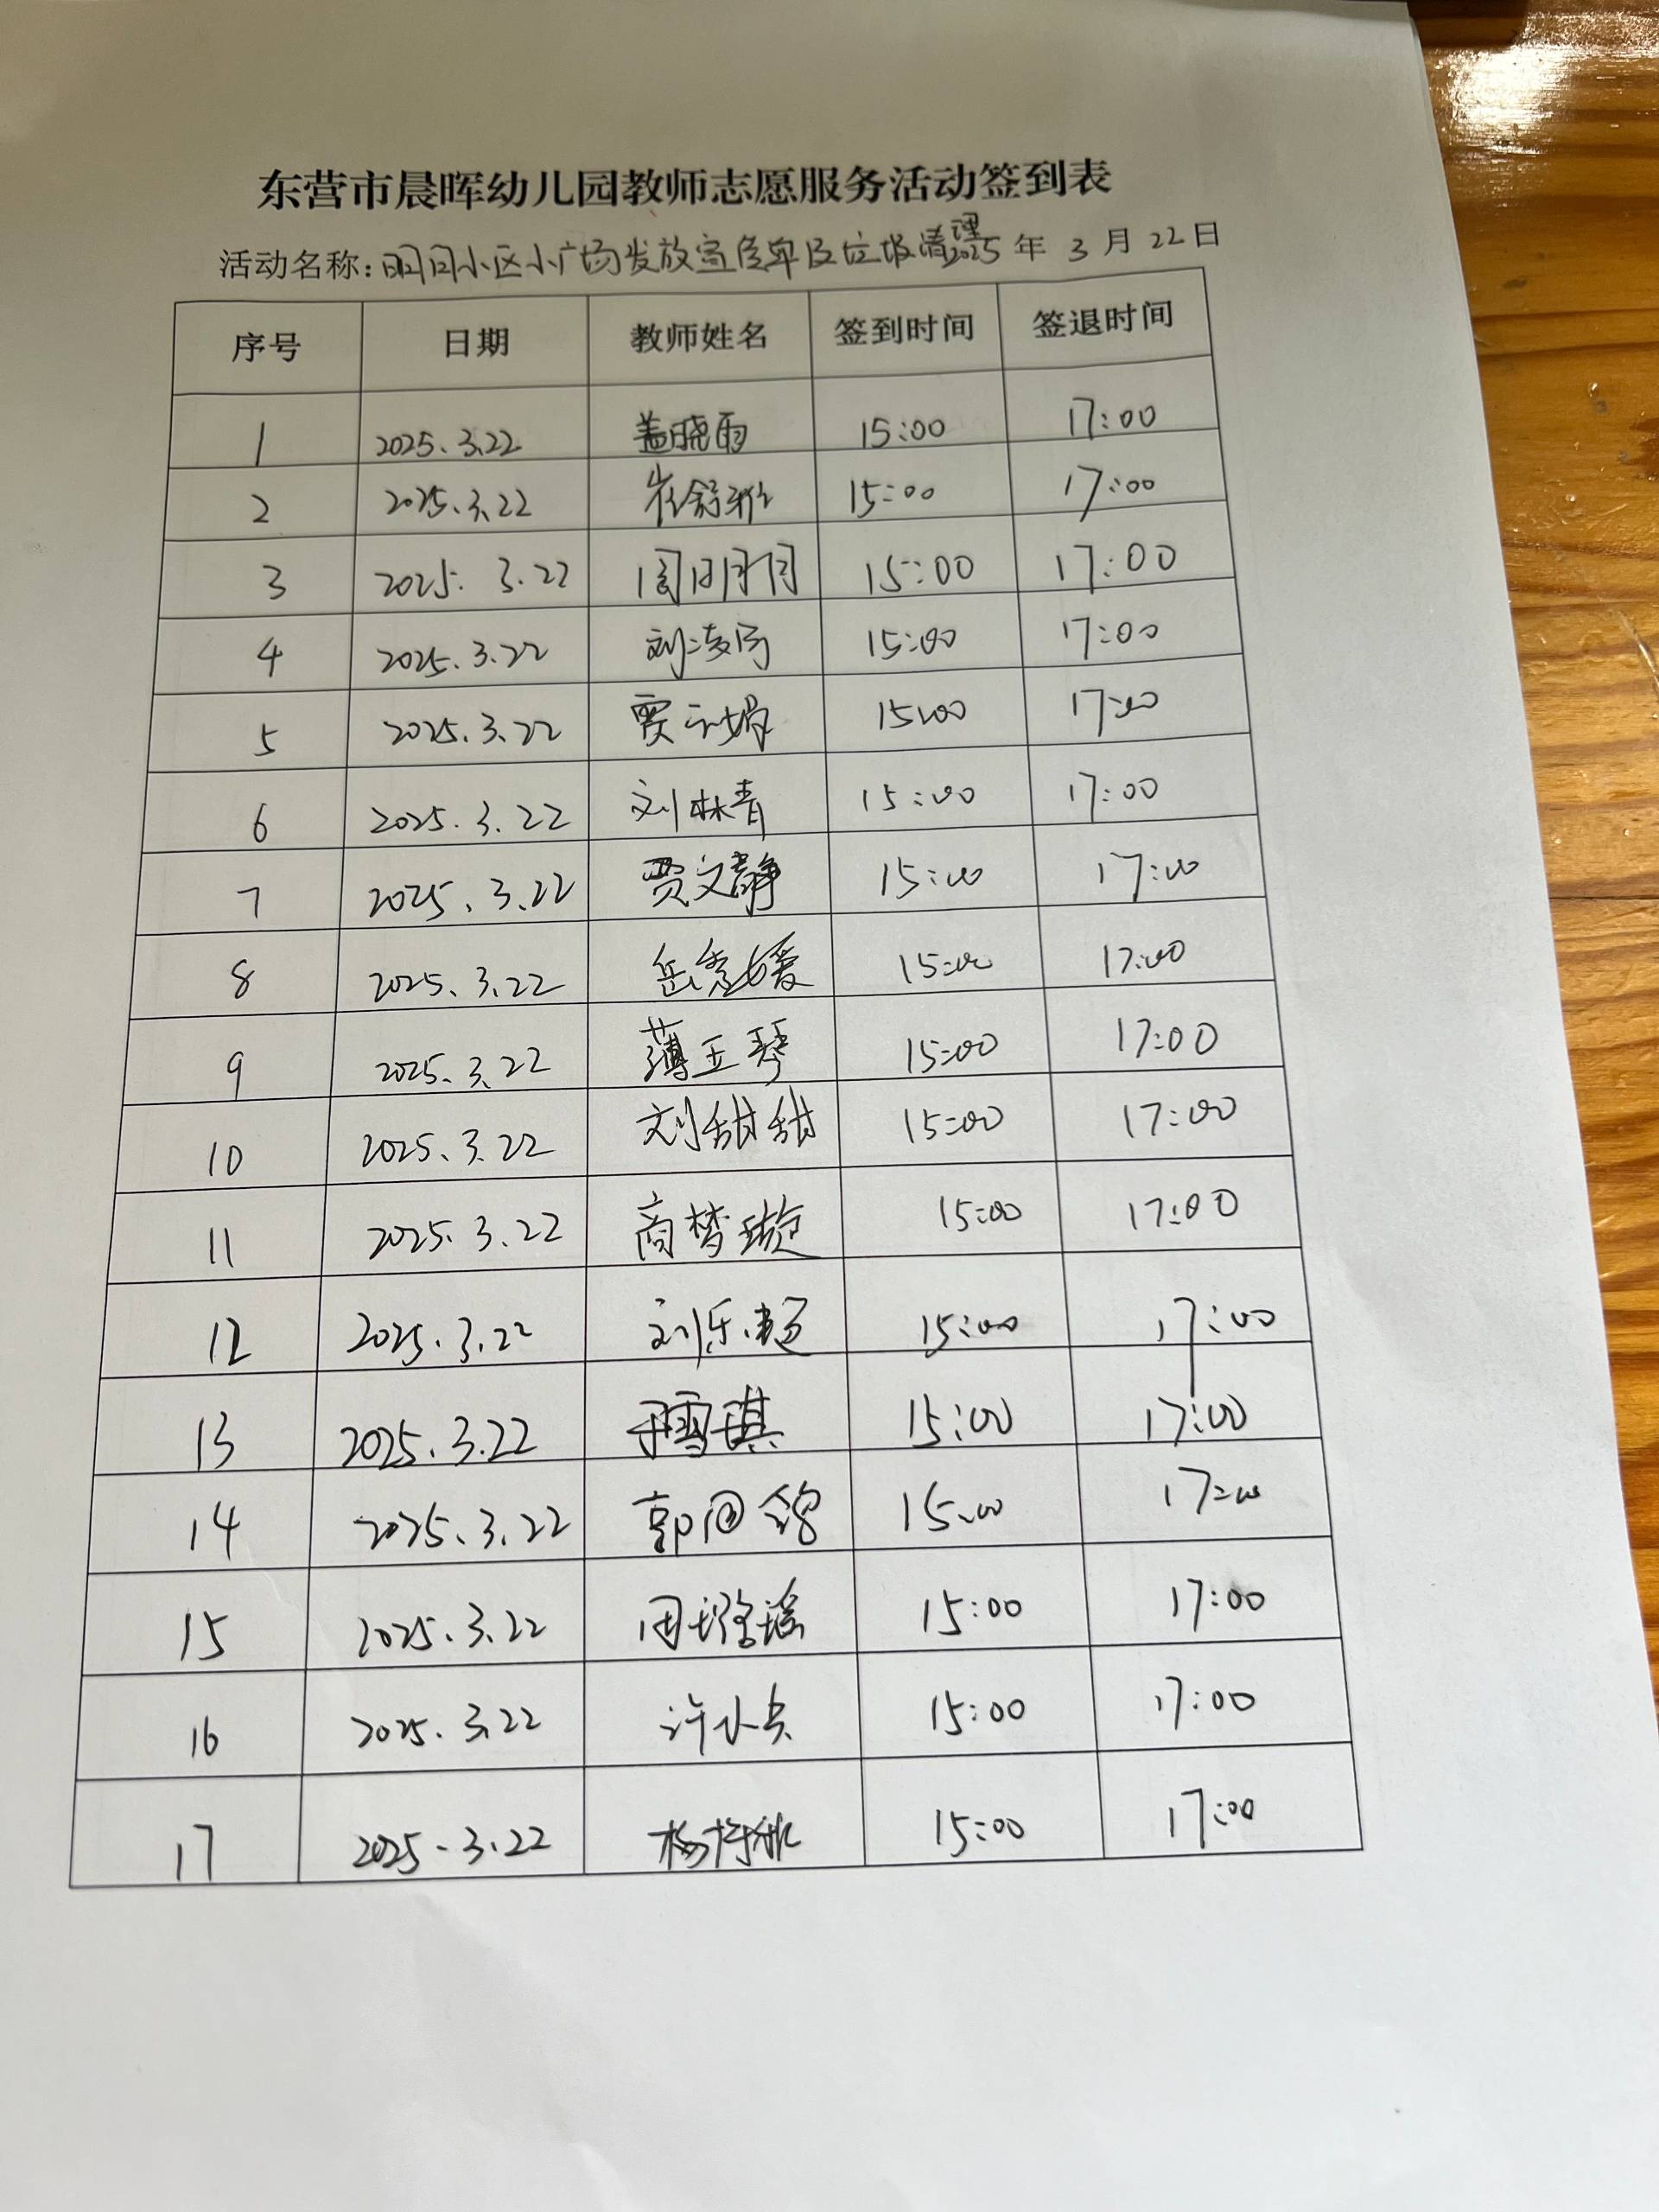 东营市晨晖幼儿园教师志愿服务活动签到表
活动名称:明月小区小广场发放宣传单及垃圾清理 2025 年 3 月 22 日
序号 日期 教师姓名 签到时间 签退时间
1 2025.3.22 盖晓雨 15:00 17:00
2 2025.3.22 崔舒雅 15:00 17:00
3 2025.3.22 周明月 15:00 17:00
4 2025.3.22 刘凌 15:00 17:00
5 2025.3.22 贾 15:00 17:00
6 2025.3.22 刘林青 15:00 17:00
7 2025.3.22 贾文静 15:00 17:00
8 2025.3.22 岳秀媛 15:00 17:00
9 2025.3.22 薄玉琴 15:00 17:00
10 2025.3.22 刘甜甜 15:00 17:00
11 2025.3.22 商梦璇 15:00 17:00
12 2025.3.22 刘乐超 15:00 17:00
13 2025.3.22 于雪琪 15:00 17:00
14 2025.3.22 郭 15:00 17:00
15 2025.3.22 田瑶 15:00 17:00
16 2025.3.22 许 15:00 17:00
17 2025.3.22 杨 15:00 17:00